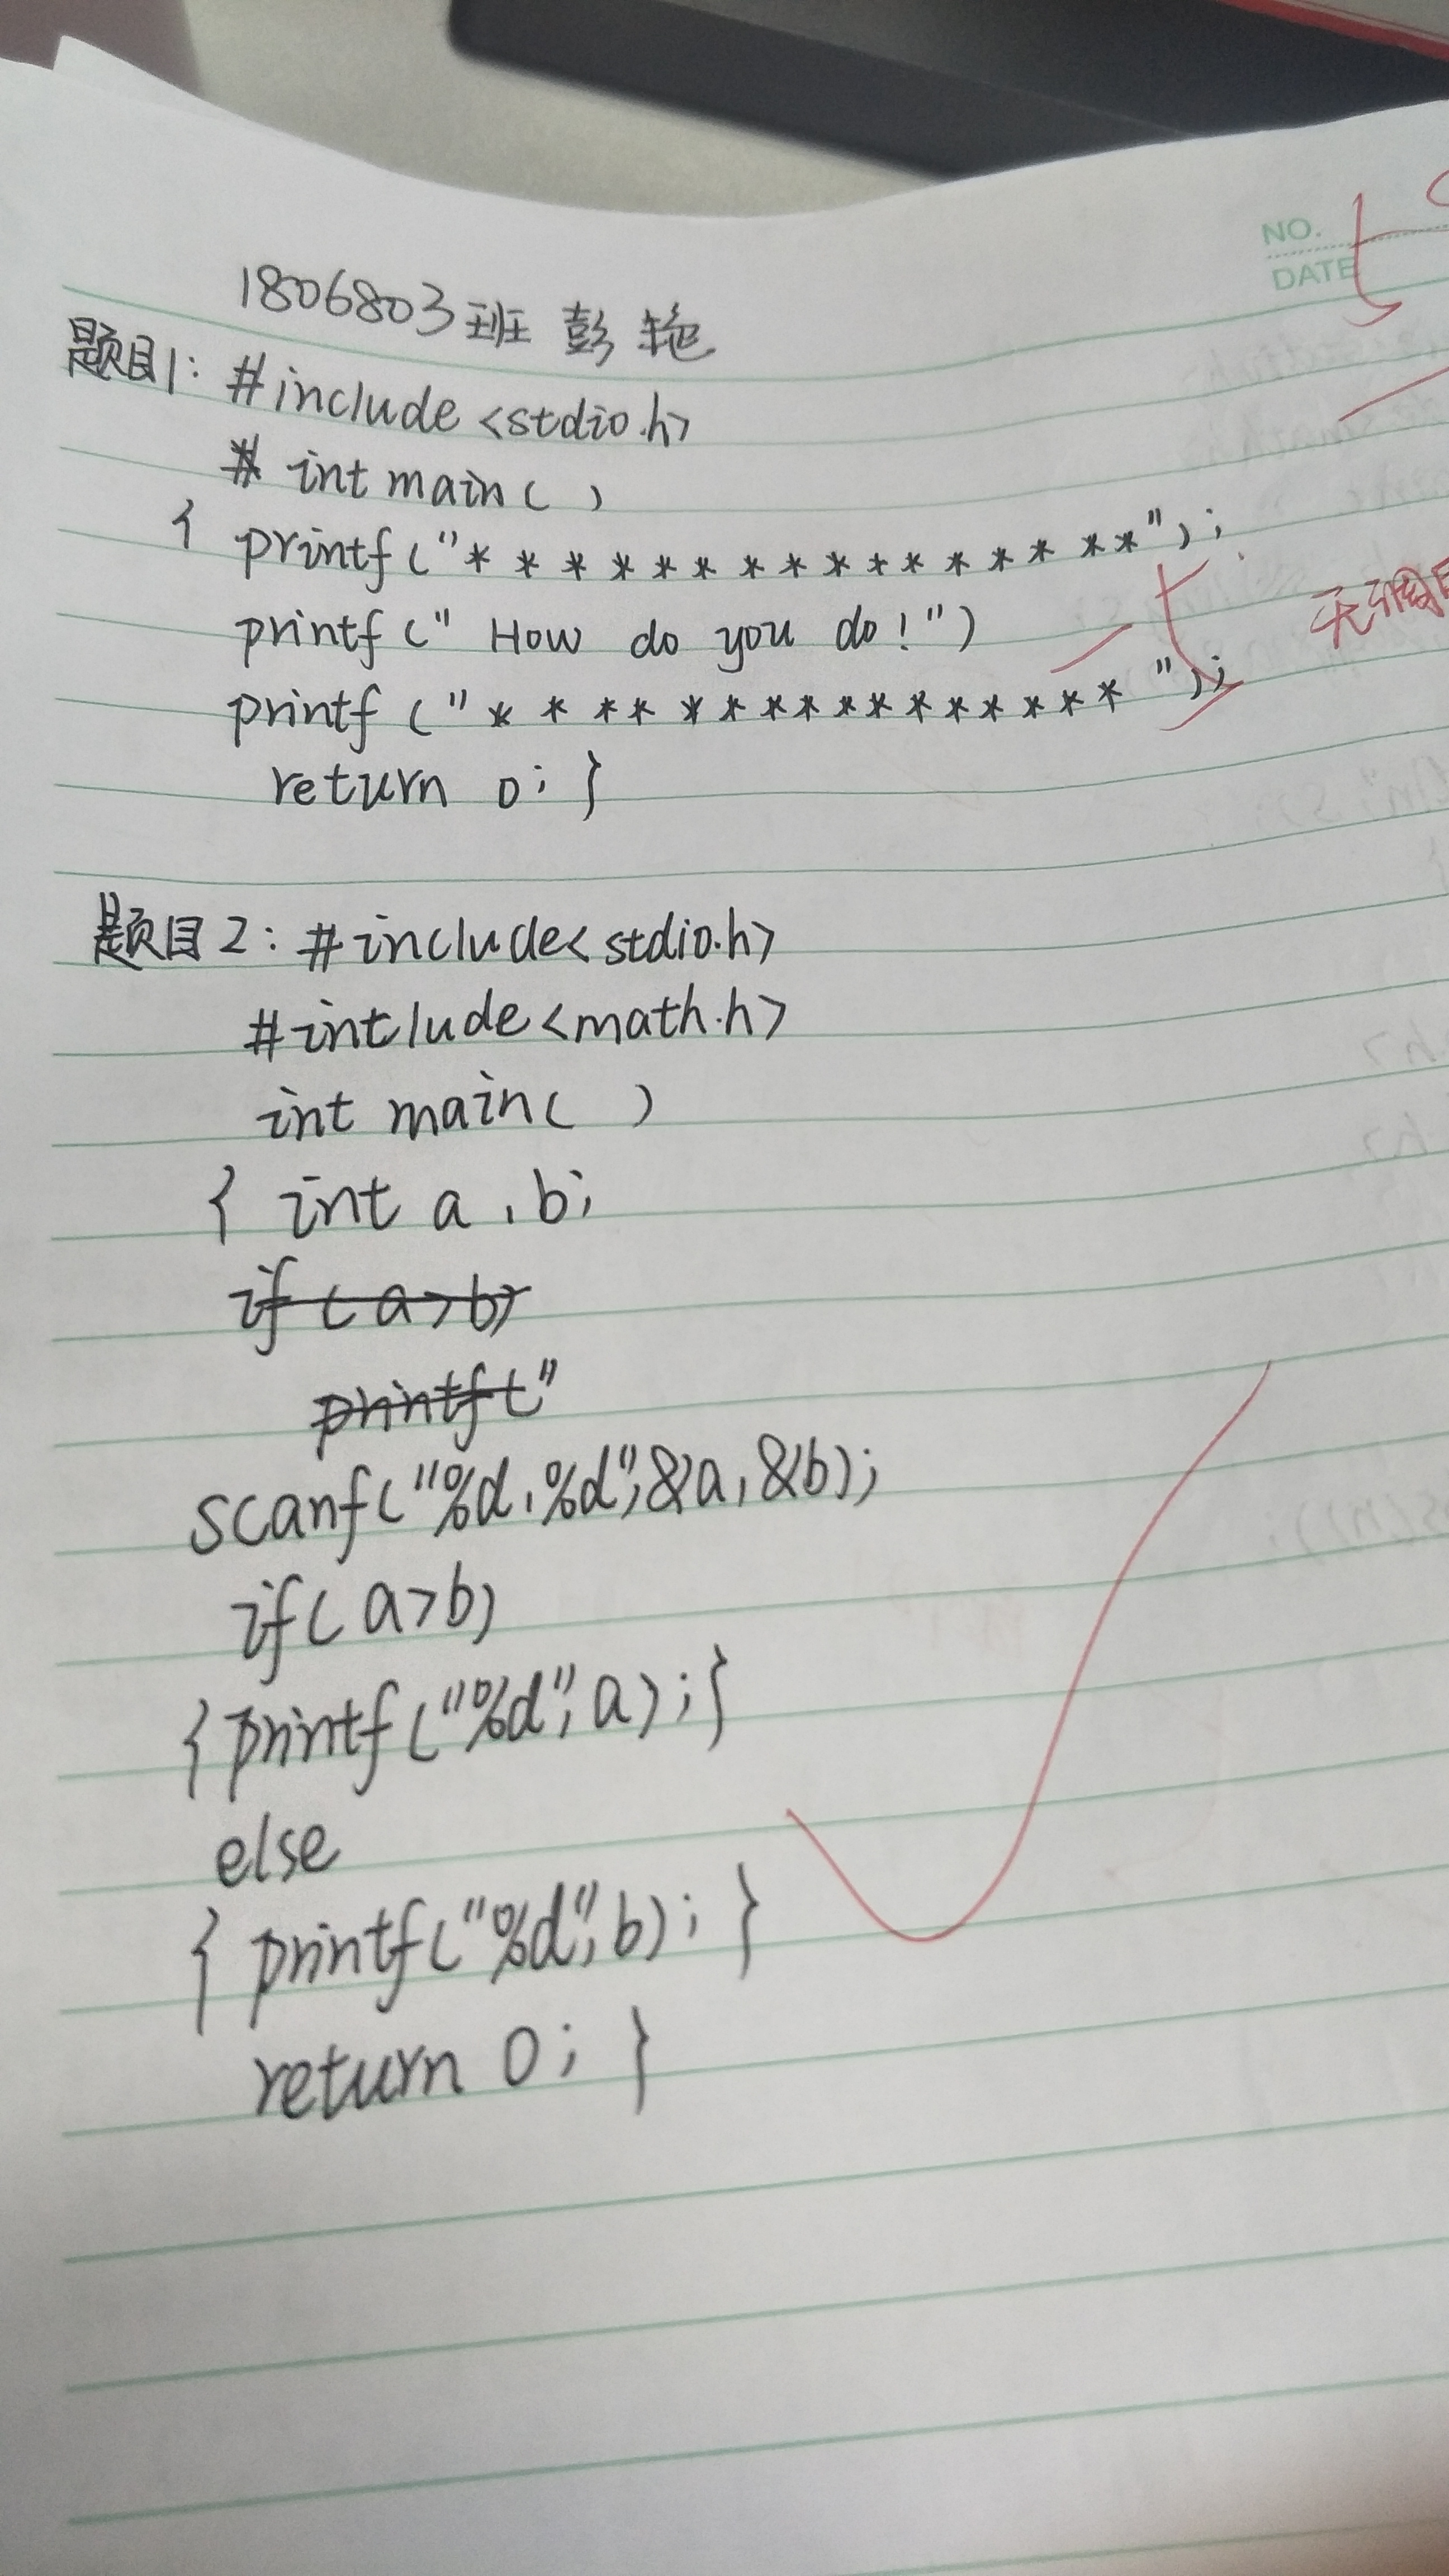 NO.
DATE
1806803班 彭艳
题目1: #include <stdio.h>
int main( )
{ printf("* * * * * * * * * * * * * * * **");
printf(" How do you do!")
printf("* * * * * * * * * * * * * * * * *");
return 0; }
题目2: #include<stdio.h>
#intlude<math.h>
int main( )
{ int a , b;
if (a>b)
printf("
scanf("%d,%d",&a,&b);
if(a>b)
{printf("%d",a);}
else
{ printf("%d",b); }
return 0; }